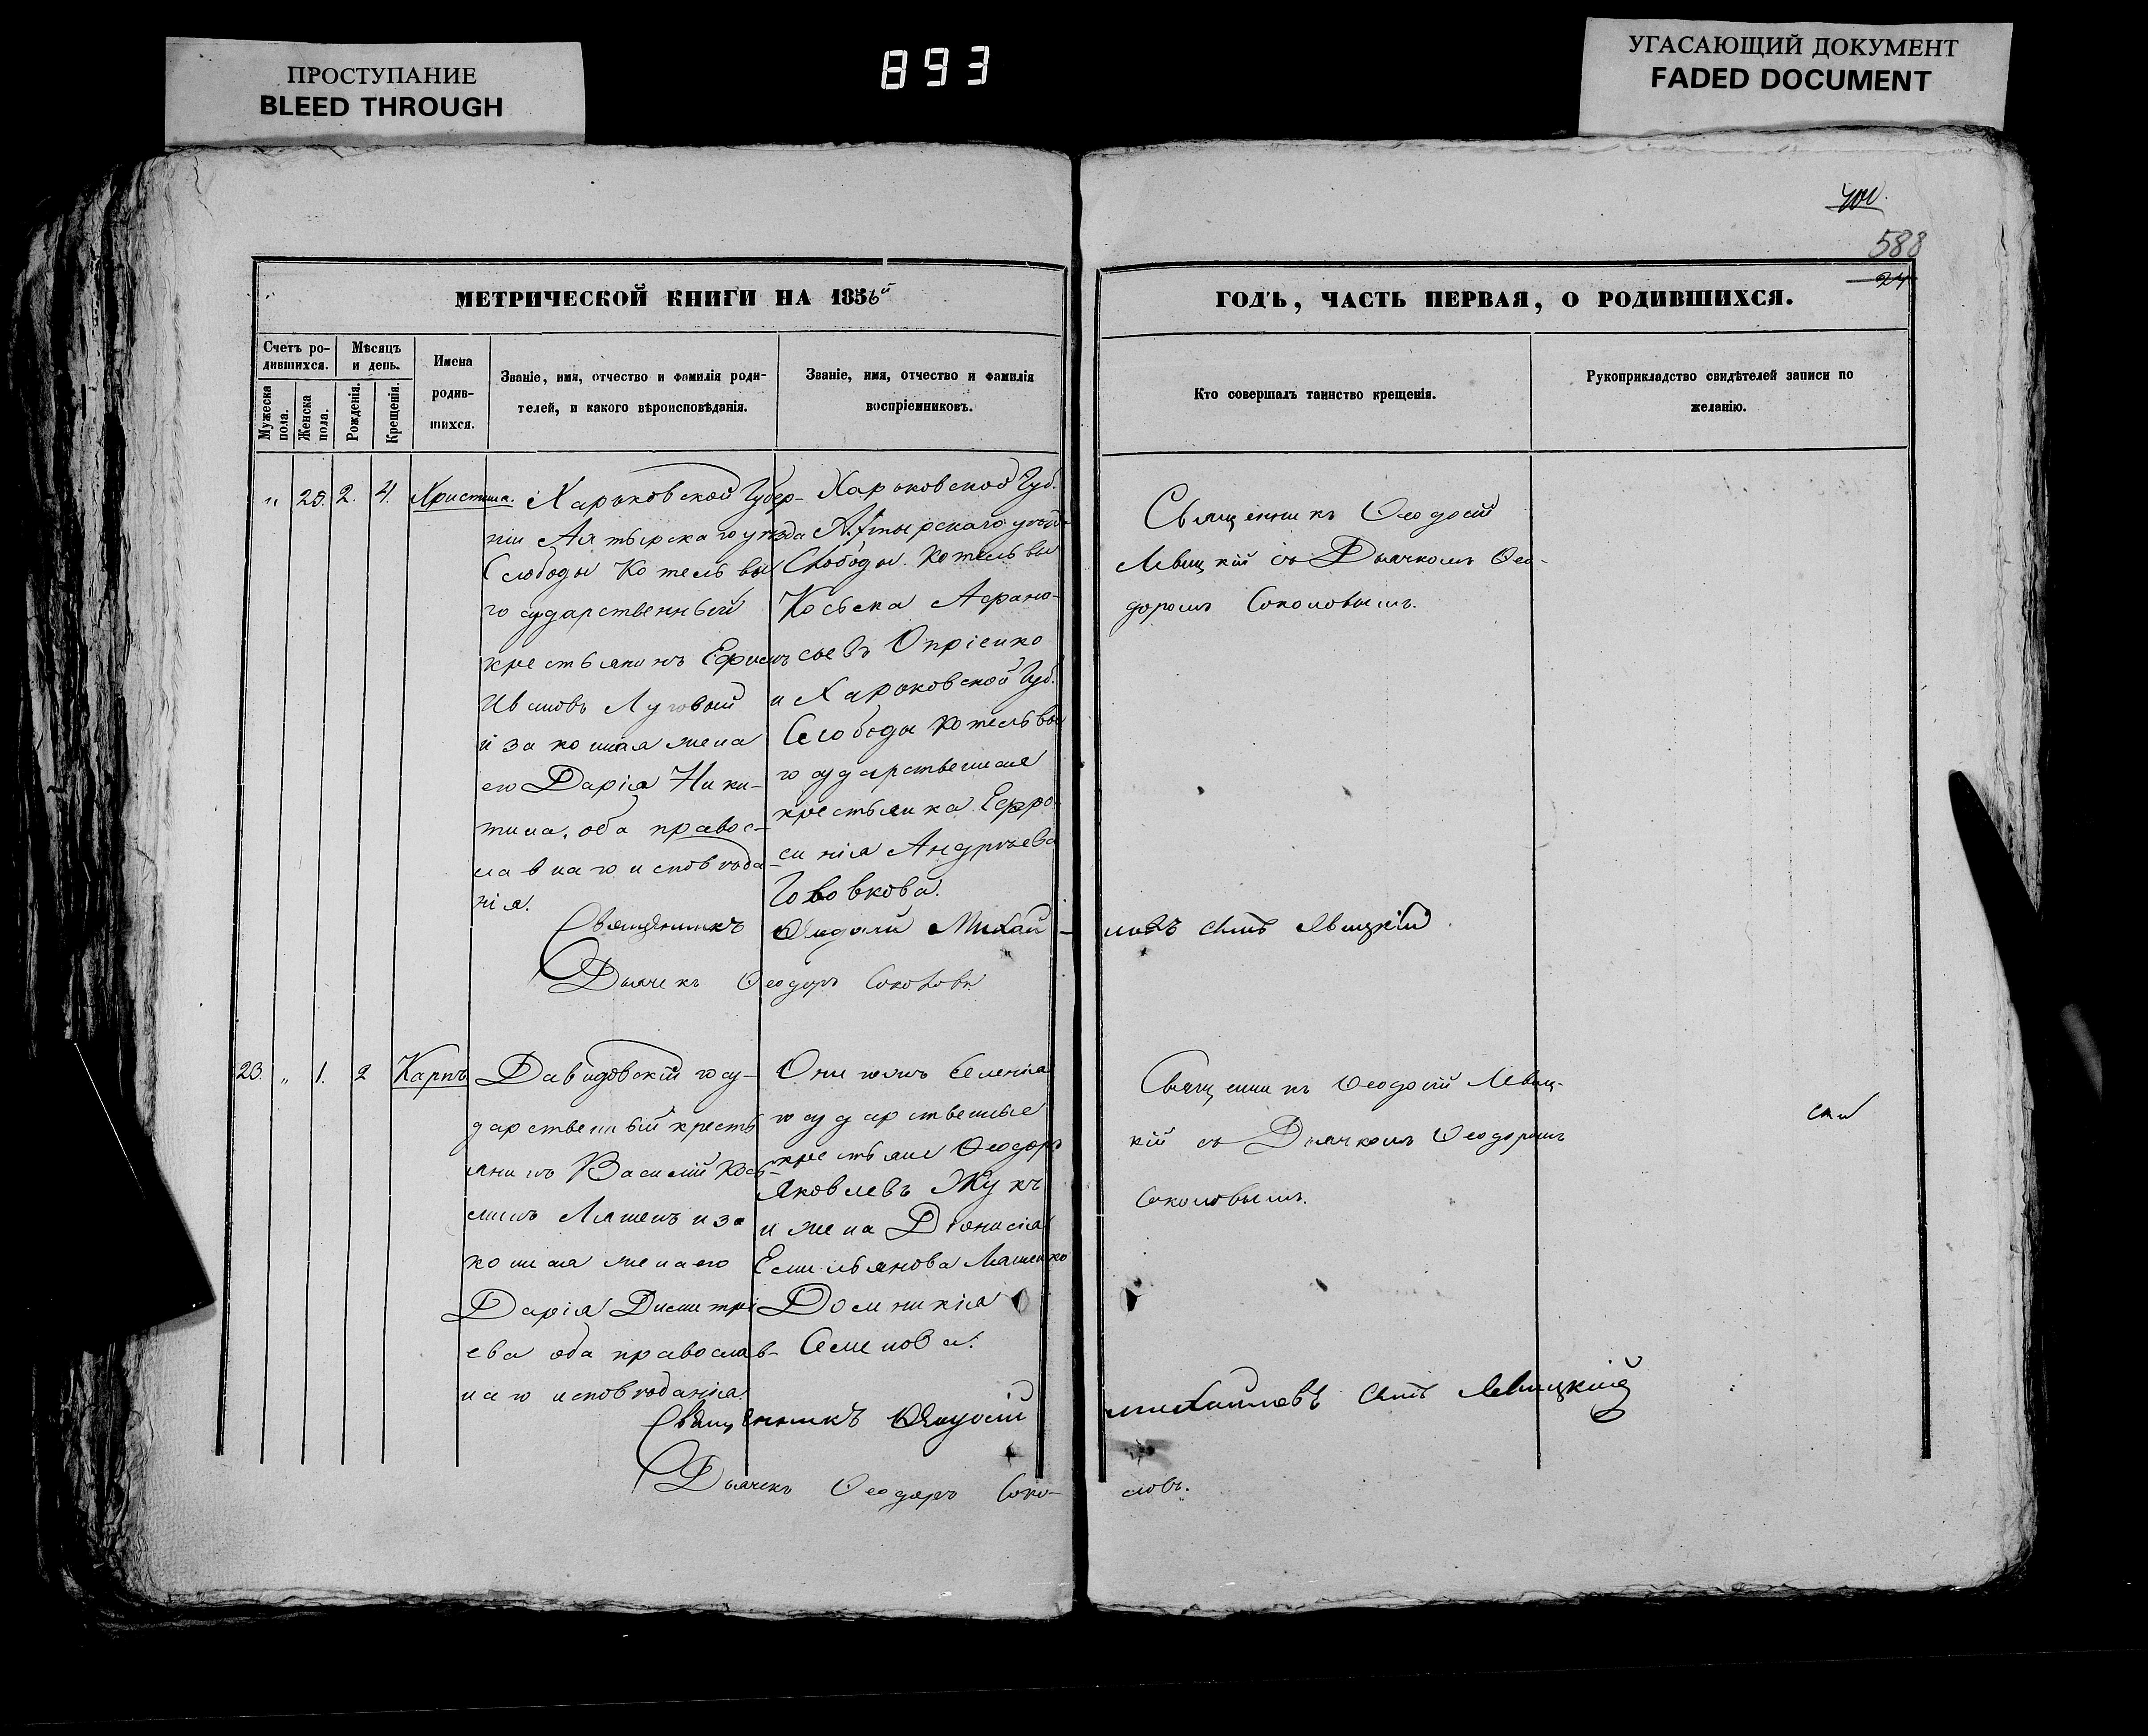 ПРОСТУПАНИЕ
BLEED THROUGH
893
УГАСАЮЩИЙ ДОКУМЕНТ
FADED DOCUMENT
588
24
МЕТРИЧЕСКОЙ КНИГИ НА 1856й
Счетъ ро-
дившихся.
Мужеска
пола.
Женска
пола.
Мѣсяцъ
и день.
Рожденія.
Крещенія.
Имена
родив-
шихся.
Званіе, имя, отчество и фамилія роди-
телей, и какого вѣроисповѣданія.
Званіе, имя, отчество и фамилія
воспріемниковъ.
ГОДЪ, ЧАСТЬ ПЕРВАЯ, О РОДИВШИХСЯ.
Кто совершалъ таинство крещенія.
Рукоприкладство свидѣтелей записи по
желанію.
" 25. 2. 4. Христина.
Харьковской Губер-
ніи Ахтырскаго уѣзда
Слободы Котельвы
государственный
крестьянинъ Ефимъ
Ивановъ Луговый
и законная жена
его Дарія Ники-
тина, оба правос-
лавнаго исповѣда-
нія.
Харьковской Губ.
Ахтырскаго уѣзда
Слободы Котельвы
Косьма Афана-
сьевъ Опріенко
и Харьковской Губ.
Слободы Котельвы
государственная
крестьянка Ефро-
синія Андреева
Головкова.
Священникъ Ѳеодосій
Левицкій съ Дьячкомъ Ѳео-
доромъ Соколовымъ.
Священникъ Ѳеодосій Михай-
ловъ сынъ Левицкій
Дьячекъ Ѳеодоръ Соколовъ
23. " 1. 2 Карпъ
Давидовскій госу-
дарственный кресть
янинъ Василій Кось-
минъ Ляшенъ и за
конная жена его
Дарія Димитрі
ева оба православ-
наго исповѣданія.
селенія
государственные
крестьяне Ѳеодоръ
Яковлевъ Жукъ
и жена Діонисія
Емильянова Ляшенко
Домникія
Семенова.
Священникъ Ѳеодосій Левиц-
кій съ Дьячкомъ Ѳеодоромъ
Соколовымъ.
Священникъ Ѳеодосій
Михайловъ сынъ Левицкій
Дьячекъ Ѳеодоръ Соко-
ловъ.